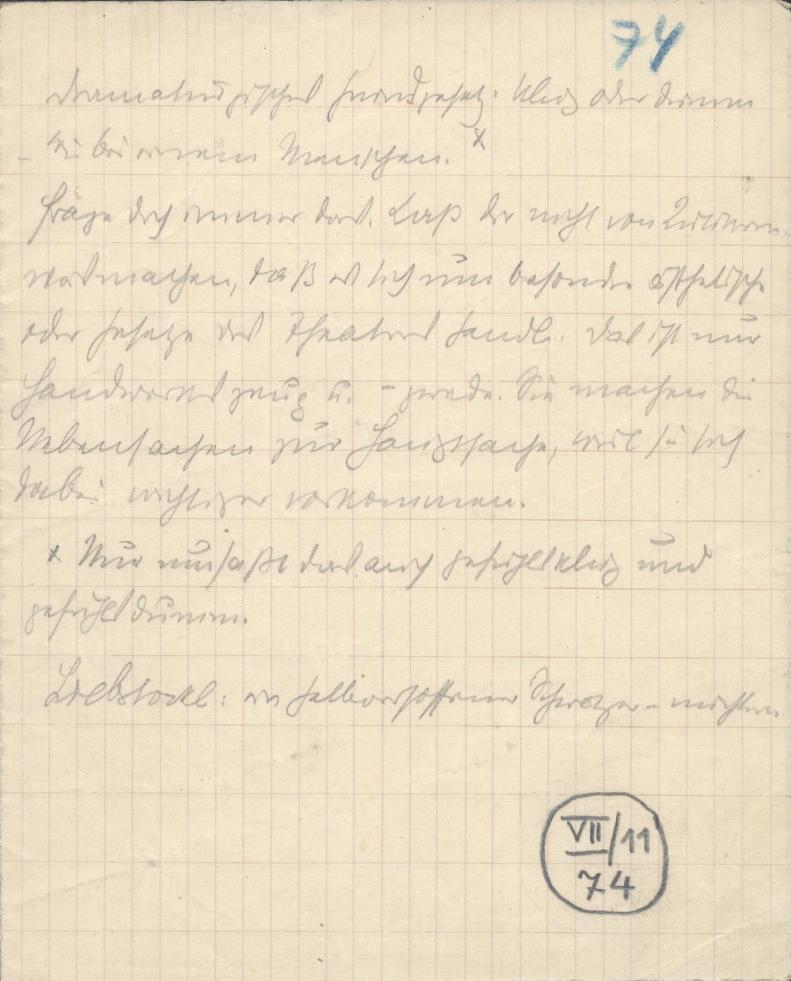 74
Dramaturgisches Grundgesetz: klug oder dumm
– wie bei einem Menschen. x
Frage dich immer das. Laß dir nicht von
weismachen, daß es sich um besondre ästhetische
oder Gesetze des Theaters handle. Das ist nur
Handwerkszeug u. – gerede. Sie machen die
Nebensachen zur Hauptsache, weil sie sich
dabei wichtiger vorkommen.
x Nur umfaßt das auch gefühlsklug und
gefühlsdumm.
Liebstöckl: ein halbversoffener –
VII/11
74